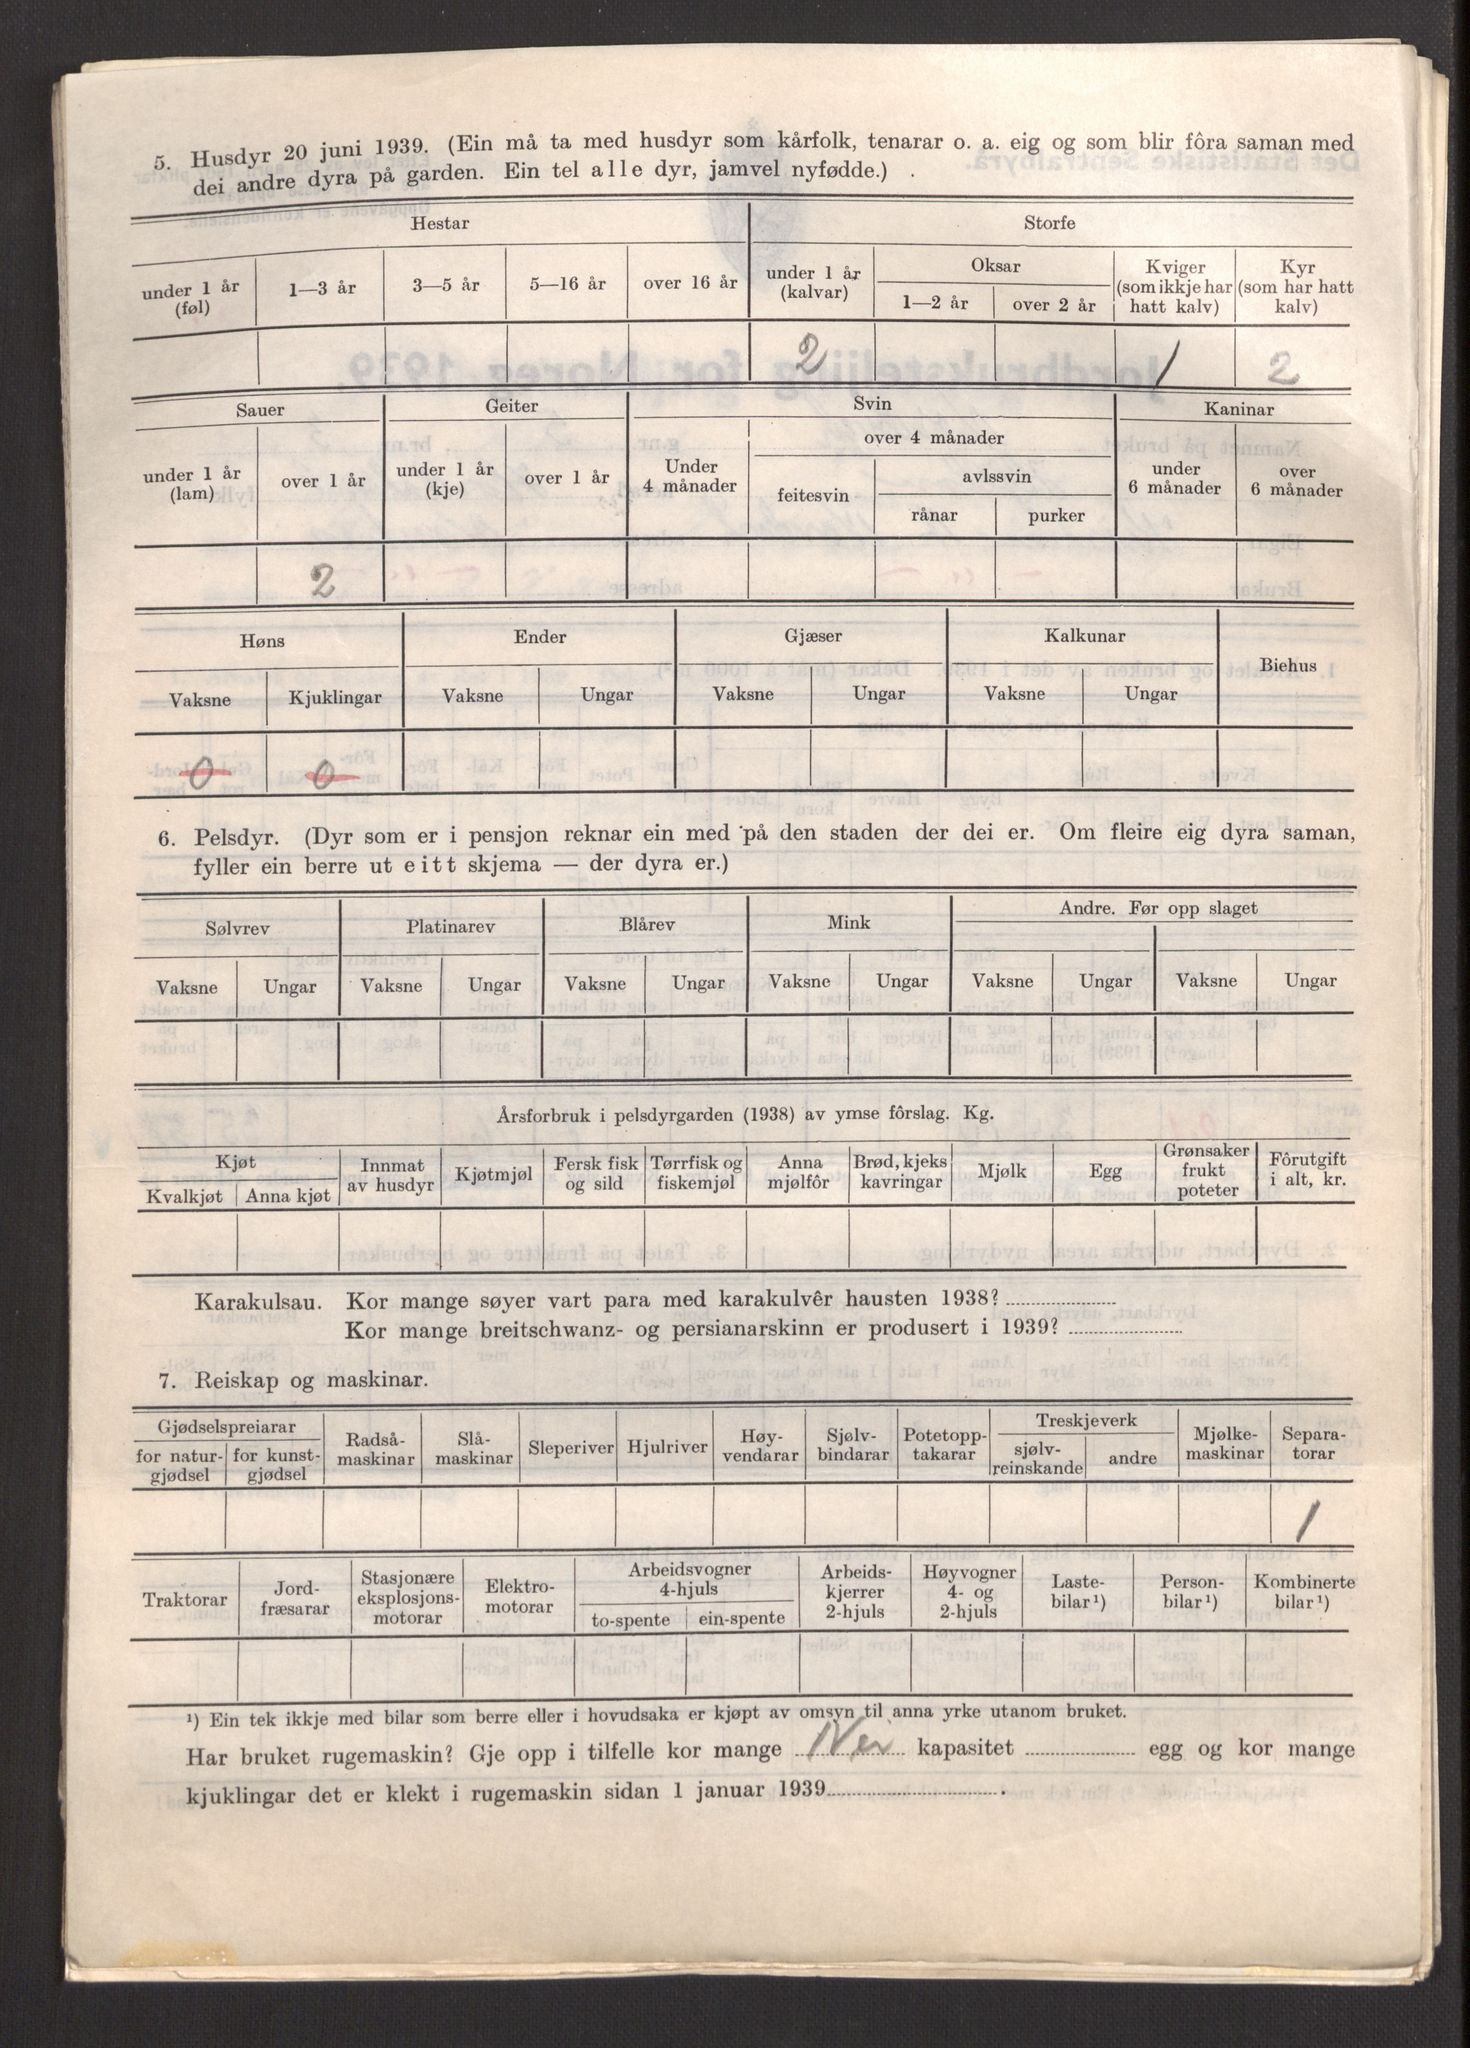 5. Husdyr 20 juni 1939. (Ein må ta med husdyr som kårfolk, tenarar o. a. eig og som blir fôra saman med
dei andre dyra på garden. Ein tel alle dyr, jamvel nyfødde.)
Hestar Storfe
under 1 år (føl) 1—3 år 3—5 år 5—16 år over 16 år under 1 år (kalvar) Oksar 1—2 år over 2 år Kviger (som ikkje har hatt kalv) Kyr (som har hatt kalv)
2 1 2
Sauer Geiter Svin Kaninar
under 1 år (lam) over 1 år under 1 år (kje) over 1 år Under 4 månader over 4 månader feitesvin avlssvin rånar purker under 6 månader over 6 månader
2
Høns Ender Gjæser Kalkunar Biehus
Vaksne Kjuklingar Vaksne Ungar Vaksne Ungar Vaksne Ungar
0 0
6. Pelsdyr. (Dyr som er i pensjon reknar ein med på den staden der dei er. Om fleire eig dyra saman,
fyller ein berre ut eitt skjema — der dyra er.)
Sølvrev Platinarev Blårev Mink Andre. Før opp slaget
Vaksne Ungar Vaksne Ungar Vaksne Ungar Vaksne Ungar Vaksne Ungar Vaksne Ungar
Årsforbruk i pelsdyrgarden (1938) av ymse fôrslag. Kg.
Kjøt Kvalkjøt Anna kjøt Innmat av husdyr Kjøtmjøl Fersk fisk og sild Tørrfisk og fiskemjøl Anna mjølfôr Brød, kjeks kavringar Mjølk Egg Grønsaker frukt poteter Fôrutgift i alt, kr.
Karakulsau. Kor mange søyer vart para med karakulvêr hausten 1938?
Kor mange breitschwanz- og persianarskinn er produsert i 1939?
7. Reiskap og maskinar.
Gjødselspreiarar for natur-gjødsel for kunst-gjødsel Radså-maskinar Slå-maskinar Sleperiver Hjulriver Høy-vendarar Sjølv-bindarar Potetopp-takarar Treskjeverk sjølv-reinskande andre Mjølke-maskinar Separa-torar
1
Traktorar Jord-fræsarar Stasjonære eksplosjons-motorar Elektro-motorar Arbeidsvogner 4-hjuls to-spente ein-spente Arbeids-kjerrer 2-hjuls Høyvogner 4- og 2-hjuls Laste-bilar¹) Person-bilar¹) Kombinerte bilar¹)
¹) Ein tek ikkje med bilar som berre eller i hovudsaka er kjøpt av omsyn til anna yrke utanom bruket.
Har bruket rugemaskin? Gje opp i tilfelle kor mange Nei kapasitet egg og kor mange
kjuklingar det er klekt i rugemaskin sidan 1 januar 1939.